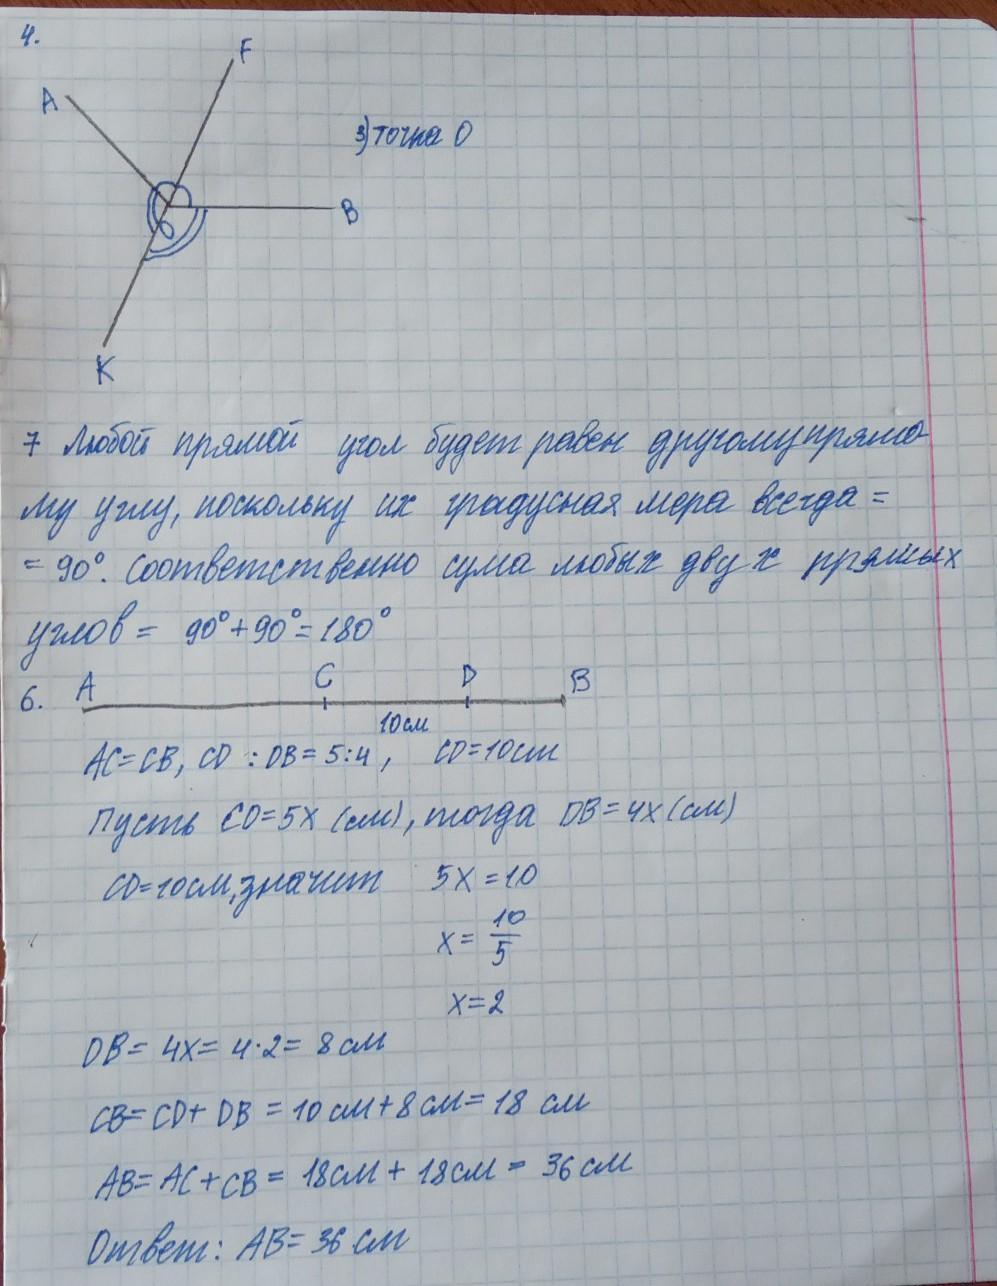 4.
F
A
3) точка О
В
О
К
7 Любой прямой угол будет равен другому прямо-
му углу, поскольку их градусная мера всегда =
= 90°. Соответственно сума любых двух прямых
углов = 90° + 90° = 180°
6. A C D B
10 см
AC = CB, CD : DB = 5:4, CD = 10 см
Пусть CD = 5x (см), тогда DB = 4x (см)
CD = 10 см, значит 5x = 10
x = 10/5
x = 2
DB = 4x = 4·2 = 8 см
CB = CD + DB = 10 см + 8 см = 18 см
AB = AC + CB = 18 см + 18 см = 36 см
Ответ: AB = 36 см